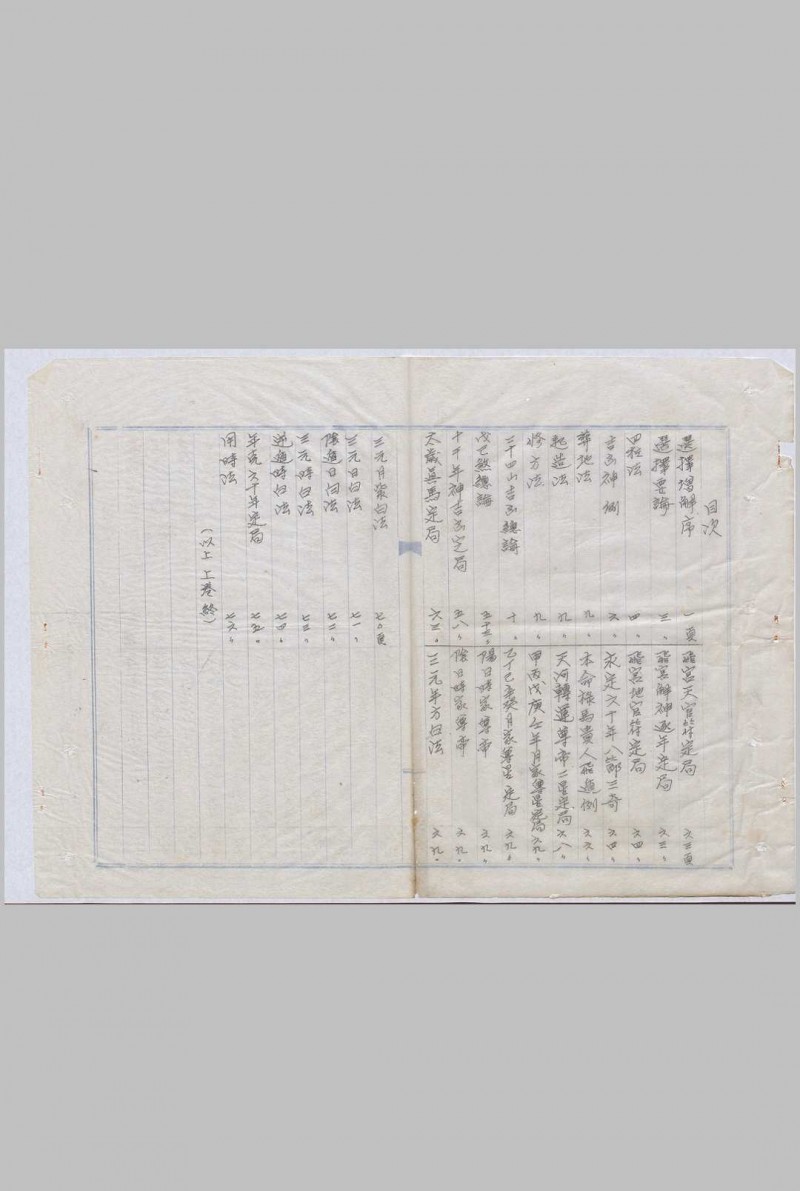 目次
選擇瑒解序 一頁
選擇要論 三〃
四柱法 四〃
吉凶神例 六〃
葬地法 九〃
起造法 九〃
修方法 九〃
二十四山吉凶總論 十〃
戊己煞總論 五十三〃
十干年神吉凶定局 五八〃
太歲差馬定局 六三〃
飛宮天官符定局 六三頁
飛宮解神逐年定局 六三〃
飛宮地官符定局 六四〃
求定六十年八節三奇 六四〃
本命祿馬貴人飛遁例 六六〃
天河轉運尊帝二星定局 六八〃
甲丙戊庚壬年月家尊星定局 六九〃
乙丁己辛癸月家尊星定局 六九〃
陽日時家尊帝 六九〃
陰日時家尊帝 六九〃
三元年方白法 六九〃
三元月家白法 七〇頁
三元日白法 七一〃
陰遁日白法 七二〃
三元時白法 七三〃
逆遁時白法 七四〃
年克六十年定局 七五〃
用時法 七六〃
（以上上卷終）